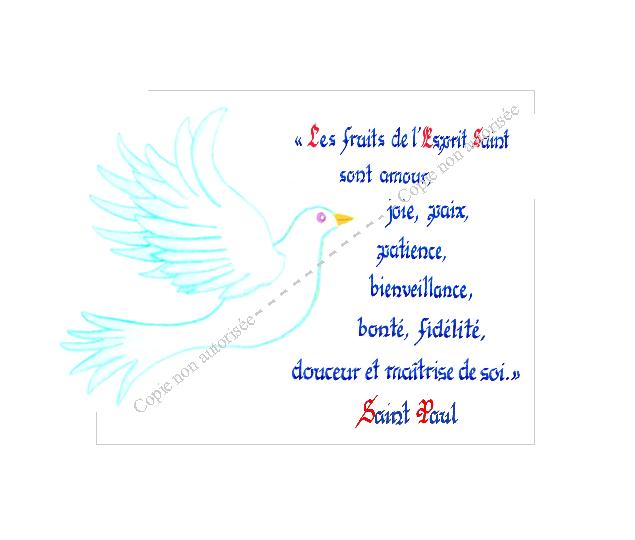 « Les fruits de l'Esprit Saint
sont amour,
joie, paix,
patience,
bienveillance,
bonté, fidélité,
douceur et maîtrise de soi.»
Saint Paul
Copie non autorisée
Copie non autorisée